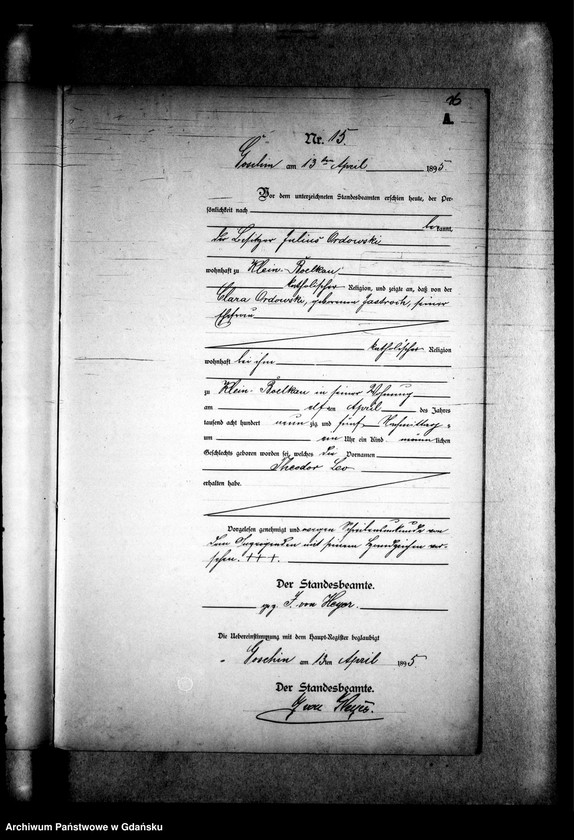 A.
Nr. 15.
Goschin am 13ten April 1895.
Vor dem unterzeichneten Standesbeamten erschien heute, der Per-
sönlichkeit nach
bekannt,
der Besitzer Julius Ordowski
wohnhaft zu Klein-Roelkau
katholischer Religion, und zeigte an, daß von der
Clara Ordowski, geborenen Jastroch, seiner
Ehefrau
katholischer Religion
wohnhaft bei ihm
zu Klein-Roelkau in seiner Wohnung
am elften April des Jahres
tausend acht hundert neunzig und fünf Nachmittags
um ein Uhr ein Kind männlichen
Geschlechts geboren worden sei, welches die Vornamen
Theodor Leo
erhalten habe.
Vorgelesen, genehmigt und wegen Schreibensunkunde von
dem Anzeigenden mit seinem Handzeichen ver-
sehen. +++.
Der Standesbeamte.
gez. J. von Heyer.
Die Uebereinstimmung mit dem Haupt-Register beglaubigt
Goschin am 13ten April 1895.
Der Standesbeamte.
J von Heyer.
Archiwum Państwowe w Gdańsku